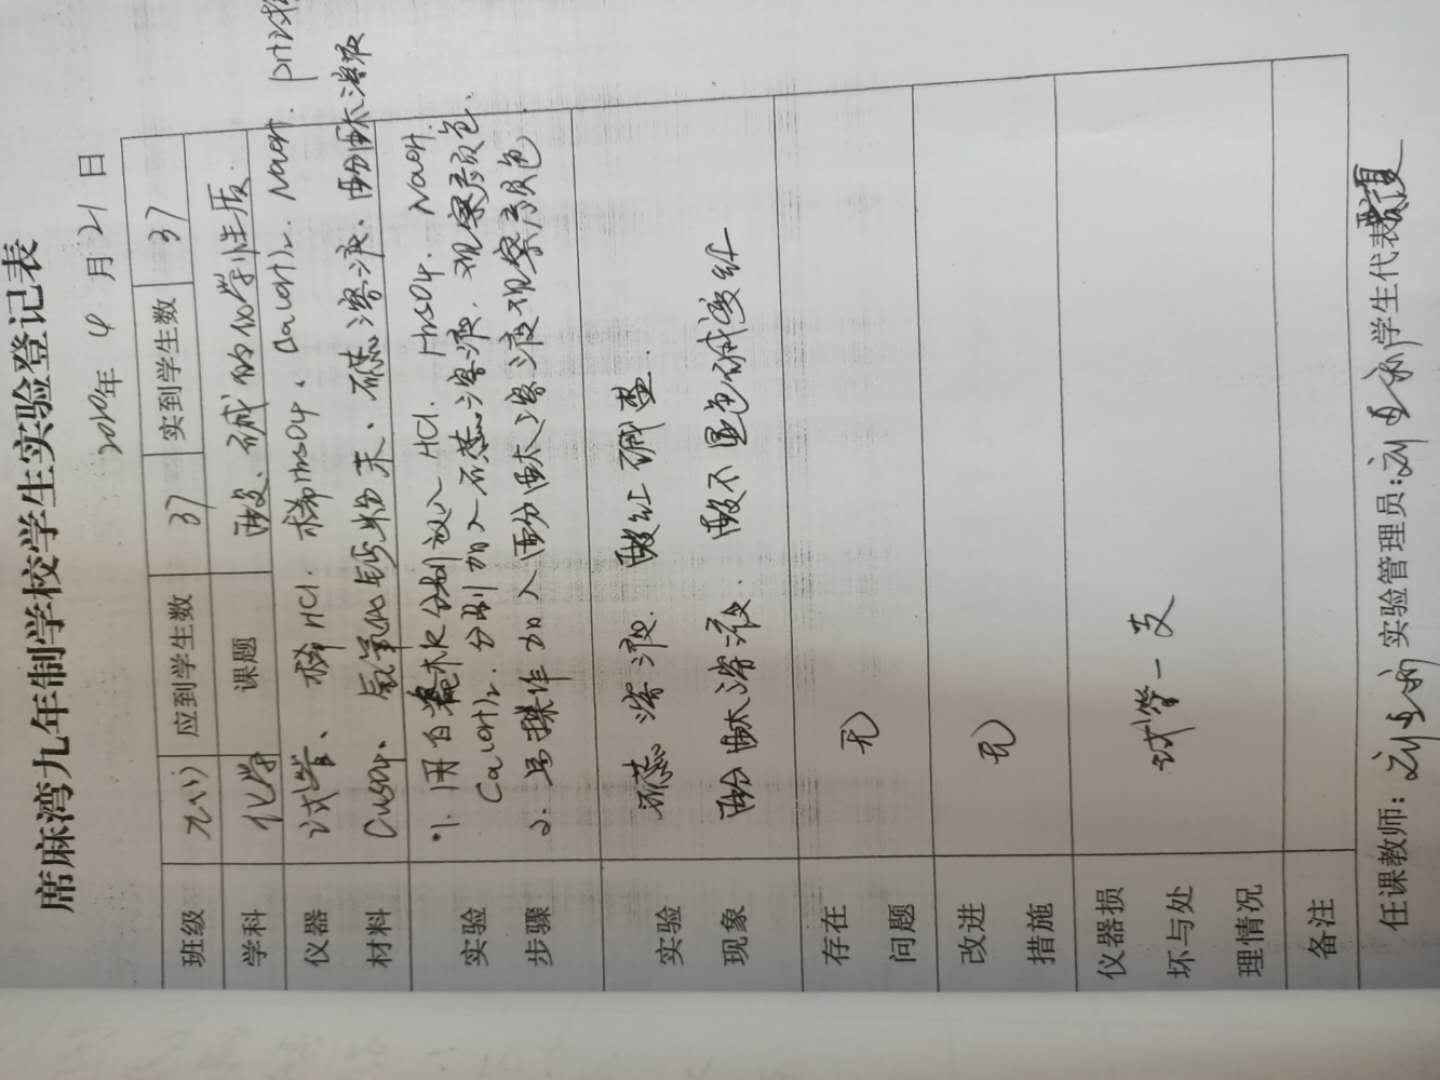 席麻湾九年制学校学生实验登记表
2020年 4 月 21 日
班级 九(1) 应到学生数 37 实到学生数 37
学科 化学 课题 酸、碱的化学性质.
仪器 试管、稀HCl. 稀H2SO4. Ca(OH)2. NaOH. pH试
材料 CuSO4. 氢氧化钙粉末. 石蕊溶液. 酚酞溶液
实验 1. 用 分别放入 HCl. H2SO4. NaOH.
Ca(OH)2. 分别加入石蕊溶液. 观察颜色.
步骤 2. 操作加入酚酞溶液观察颜色
实验 石蕊溶液. 酸红碱蓝
现象 酚酞溶液. 酸不显色碱变红
存在
问题 无
改进
措施 无
仪器损
坏与处 试管一支
理情况
备注
任课教师: 实验管理员: 学生代表